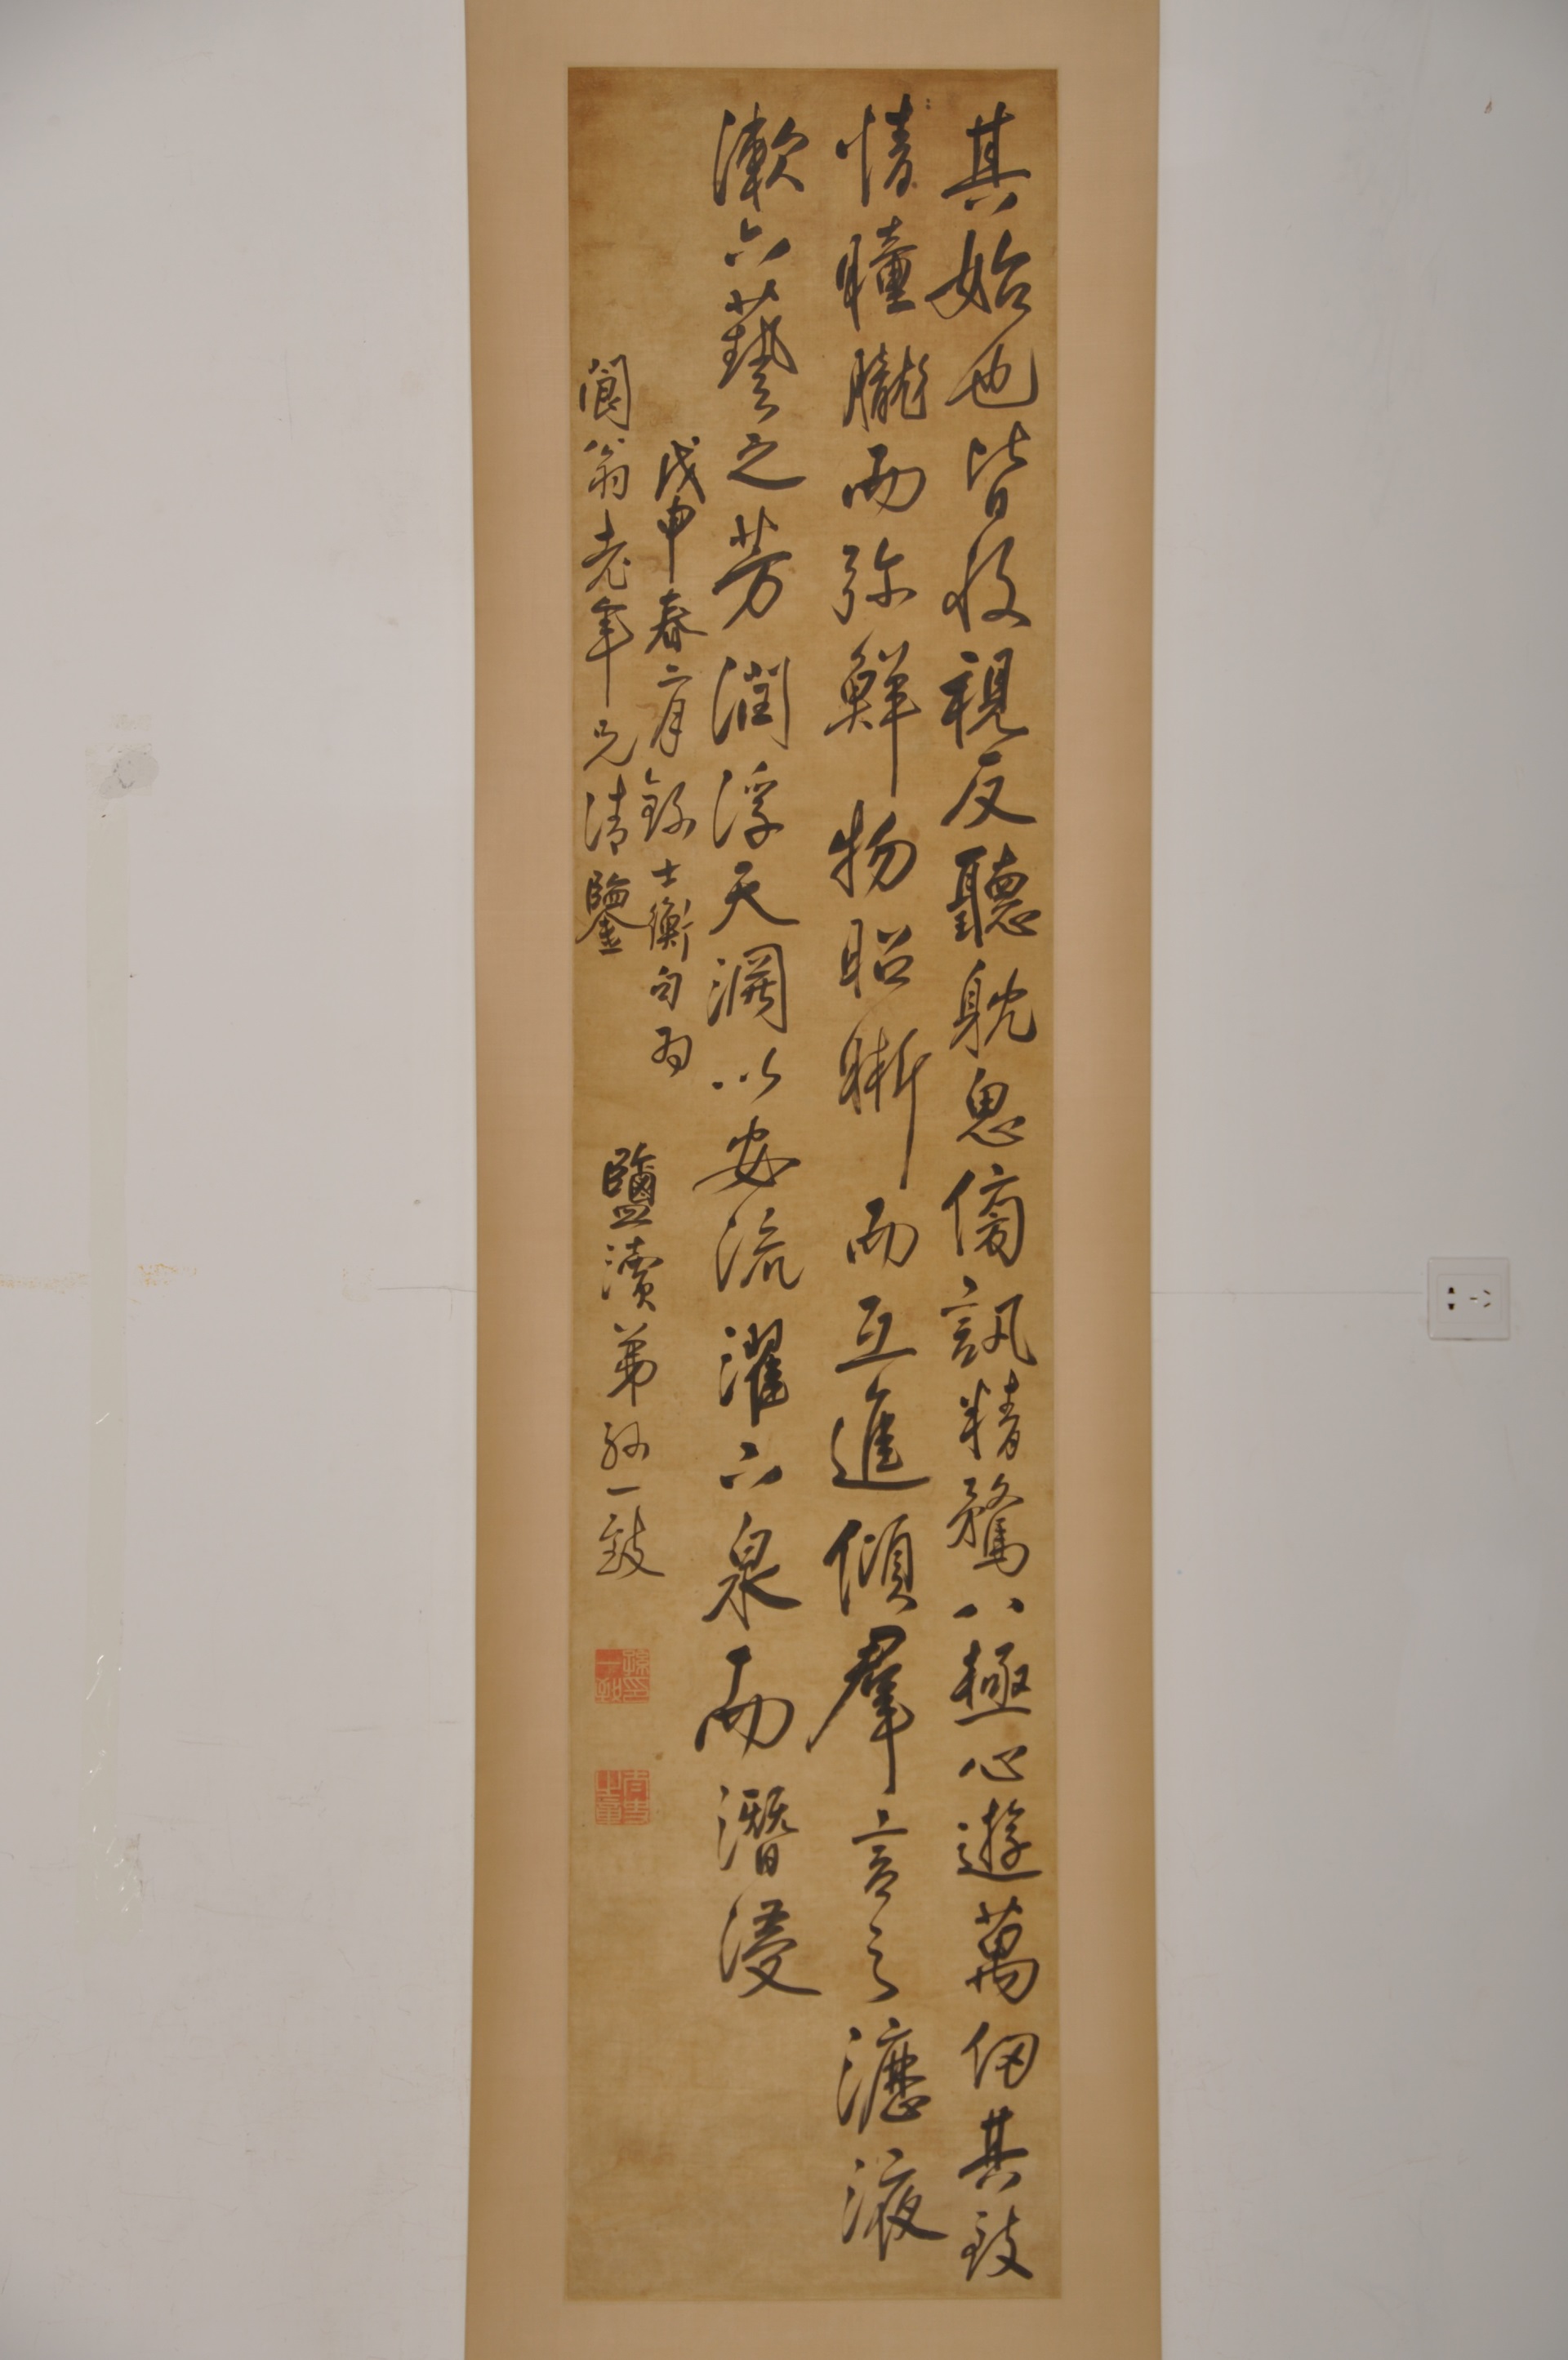 其始也皆收視反聽躭思傍訊精騖八極心遊萬仞其致
情瞳朧而弥鮮物昭晰而互進傾羣言之瀝液
漱六藝之芳潤浮天淵以安流濯下泉而潛浸
戊申春二月錄士衡句為
閬翁老年兄清鑒
鹽瀆弟孫一致
孫一致印